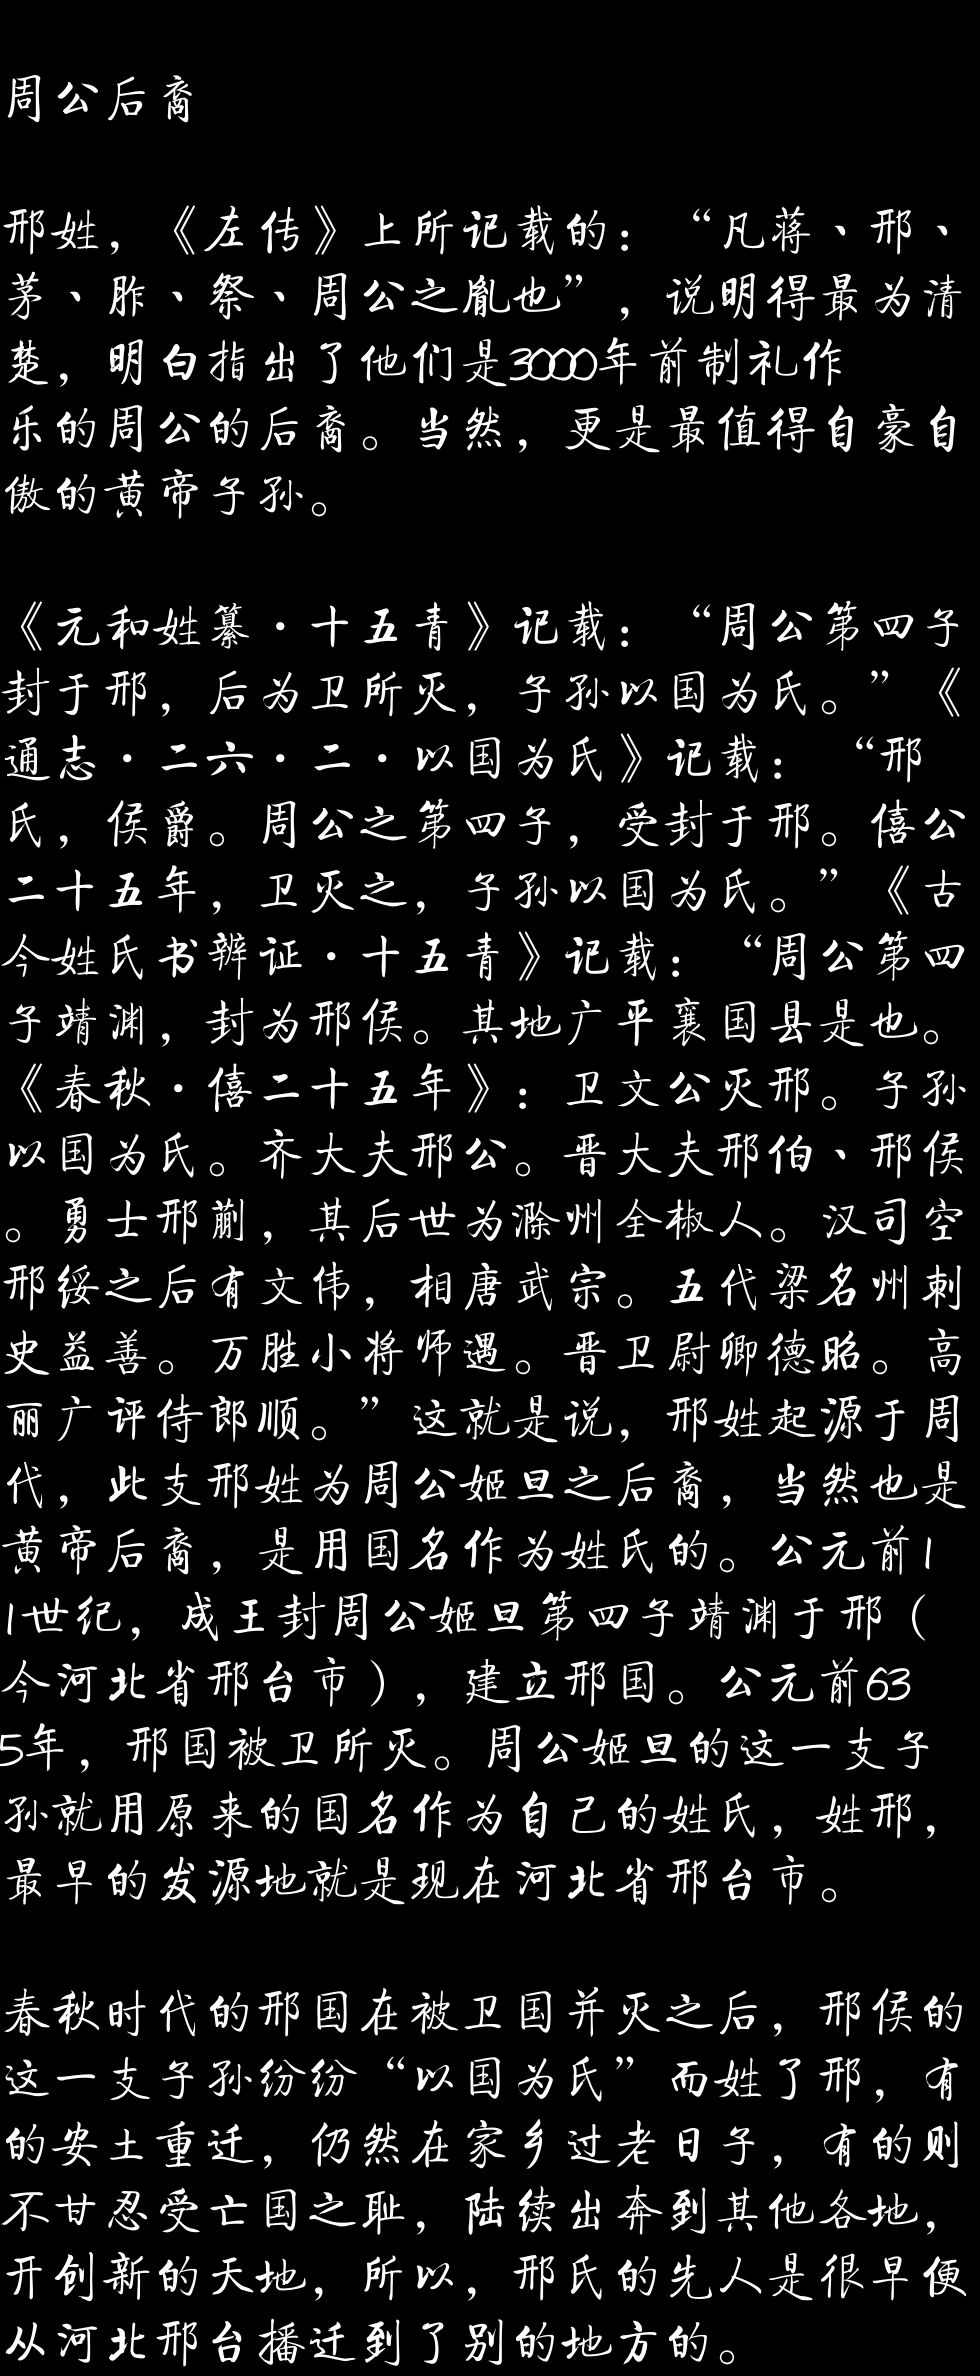 周公后裔
邢姓，《左传》上所记载的：“凡蒋、邢、
茅、胙、祭、周公之胤也”，说明得最为清
楚，明白指出了他们是3000年前制礼作
乐的周公的后裔。当然，更是最值得自豪自
傲的黄帝子孙。
《元和姓纂·十五青》记载：“周公第四子
封于邢，后为卫所灭，子孙以国为氏。”《
通志·二六·二·以国为氏》记载：“邢
氏，侯爵。周公之第四子，受封于邢。僖公
二十五年，卫灭之，子孙以国为氏。”《古
今姓氏书辨证·十五青》记载：“周公第四
子靖渊，封为邢侯。其地广平襄国县是也。
《春秋·僖二十五年》：卫文公灭邢。子孙
以国为氏。齐大夫邢公。晋大夫邢伯、邢侯
。勇士邢蒯，其后世为滁州全椒人。汉司空
邢绥之后有文伟，相唐武宗。五代梁名州刺
史益善。万胜小将师遇。晋卫尉卿德昭。高
丽广评侍郎顺。”这就是说，邢姓起源于周
代，此支邢姓为周公姬旦之后裔，当然也是
黄帝后裔，是用国名作为姓氏的。公元前1
1世纪，成王封周公姬旦第四子靖渊于邢（
今河北省邢台市），建立邢国。公元前63
5年，邢国被卫所灭。周公姬旦的这一支子
孙就用原来的国名作为自己的姓氏，姓邢，
最早的发源地就是现在河北省邢台市。
春秋时代的邢国在被卫国并灭之后，邢侯的
这一支子孙纷纷“以国为氏”而姓了邢，有
的安土重迁，仍然在家乡过老日子，有的则
不甘忍受亡国之耻，陆续出奔到其他各地，
开创新的天地，所以，邢氏的先人是很早便
从河北邢台播迁到了别的地方的。